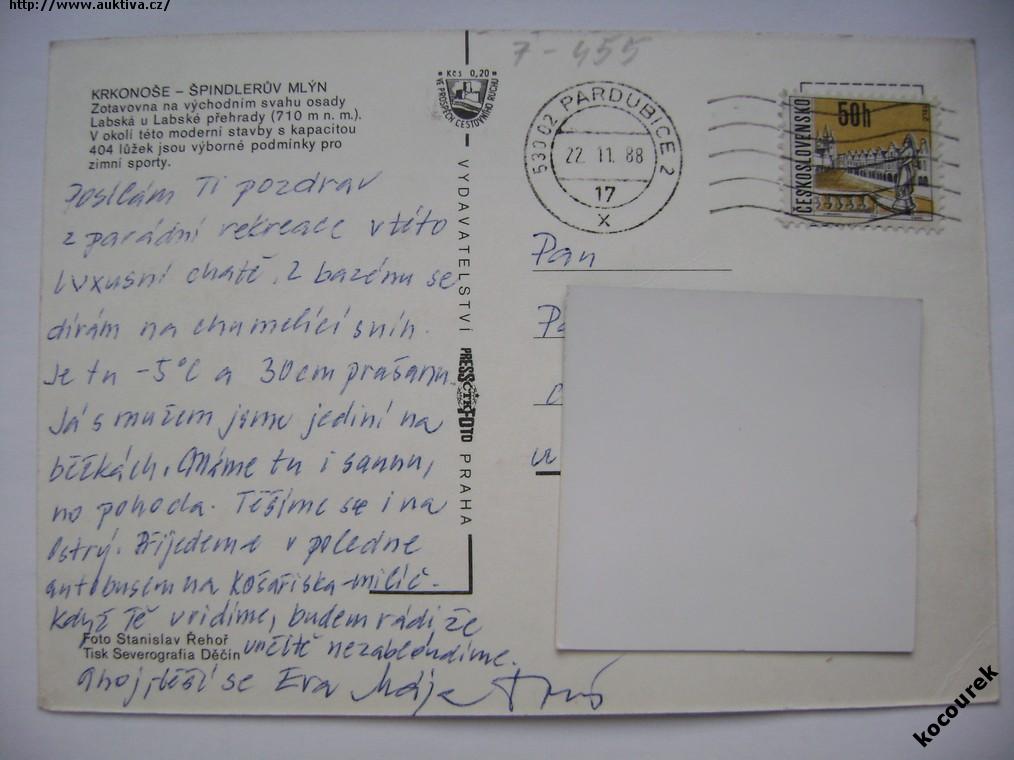 http://www.auktiva.cz/
7-455
KRKONOŠE – ŠPINDLERŮV MLÝN
Zotavovna na východním svahu osady
Labská u Labské přehrady (710 m n. m.).
V okolí této moderní stavby s kapacitou
404 lůžek jsou výborné podmínky pro
zimní sporty.
Posílám Ti pozdrav
z parádní rekreace v této
luxusní chatě. Z bazénu se
dívám na chumelící sníh.
Je tu -5°C a 30cm prašanu.
Já s mužem jsme jediní na
běžkách. Máme tu i saunu,
no pohoda. Těšíme se i na
Ostrý. Přijedeme v poledne
autobusem na Košařiska-milíč.
Když Tě uvidíme, budem rádi že
určitě nezabloudíme.
Ahoj, těší se Eva
Foto Stanislav Řehoř
Tisk Severografia Děčín
• Kčs 0,20 •
VE PROSPĚCH CESTOVNÍHO RUCHU
VYDAVATELSTVÍ PRESSFOTO ČTK PRAHA
530 02 PARDUBICE 2
22.11.88
17
x
ČESKOSLOVENSKO
50h
Pan
kocourek